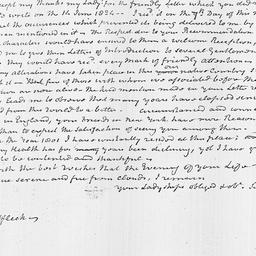 cept my thanks my Lady for the friendly letter which you did
to write on the 4th June 182
the occurrences which prevented its being delivered to me by
mentioned in it. The Respect due to your Recommendation
characters would have ensured to them a welcome Reception,
to give them Letters of Introduction to several Gentlemen
They would have recd. every mark of friendly attention
alterations have taken place in this our native Country
that few of those with whom we associated before the
are now alive. The kind mention made in your Letter
leads me to believe that on many years have elapsed since
from this world to a better. Circumstanced and connected
in England, your friends in New York have more Reason
than to expect the satisfaction of seeing you among them.
the Year 1801 I have constantly resided at this place;
my Health has for many years been declining, yet I have
to be contented and thankful
with the best wishes that the Evening of your Life
serene and free from clouds, I remain
your Ladyships obligd & obt.
ffleck